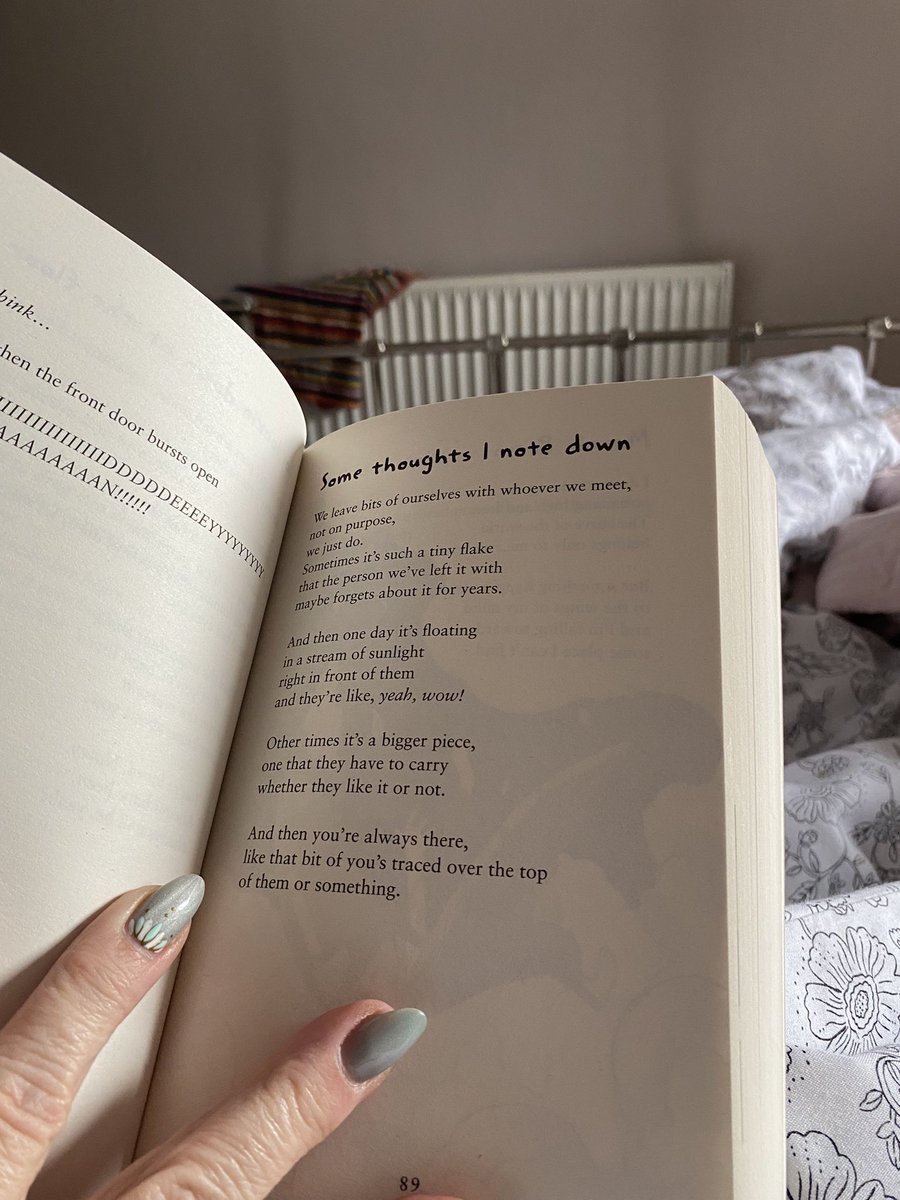 think...
then the front door bursts open
Some thoughts I note down
We leave bits of ourselves with whoever we meet,
not on purpose,
we just do.
Sometimes it's such a tiny flake
that the person we've left it with
maybe forgets about it for years.
And then one day it's floating
in a stream of sunlight
right in front of them
and they're like, yeah, wow!
Other times it's a bigger piece,
one that they have to carry
whether they like it or not.
And then you're always there,
like that bit of you's traced over the top
of them or something.
89